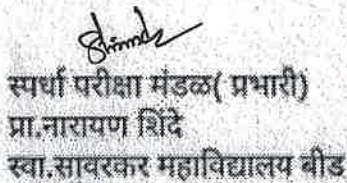 Shinde
स्पर्धा परीक्षा मंडळ( प्रभारी)
प्रा.नारायण शिंदे
स्वा.सावरकर महाविद्यालय बीड